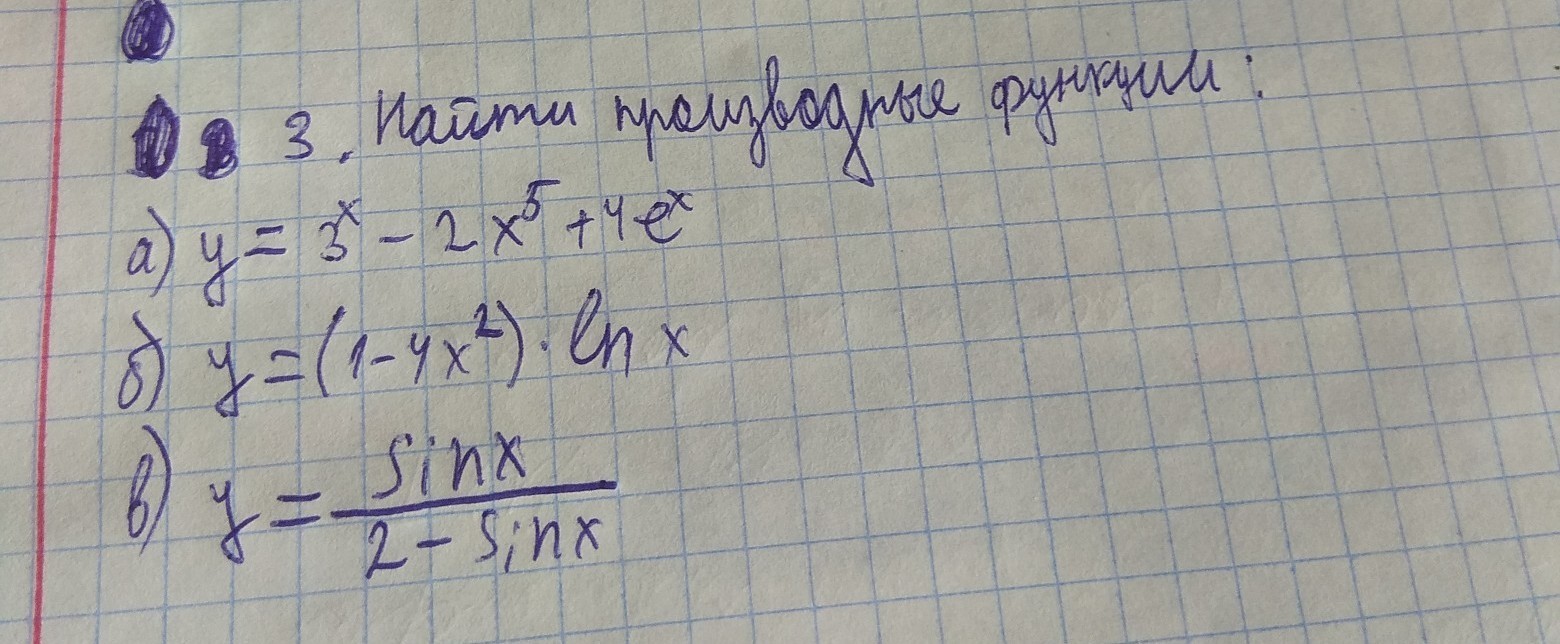 3. Найти производные функции:
а) y = 3^x - 2x^5 + 4e^x
б) y = (1-4x^2) · ln x
в) y = sinx / 2 - sinx